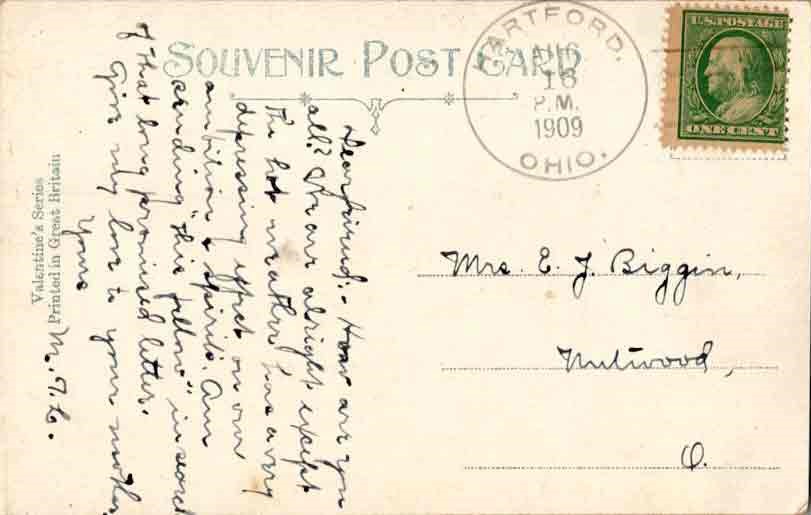 SOUVENIR POST CARD
HARTFORD.
AUG
16
P.M.
1909
OHIO.
U.S. POSTAGE
ONE CENT
Dear friend:- How are you
all? We are alright except
the hot weather has a very
depressing effect on our
ambition & spirits. Am
sending "this fellow" in search
of that long promised letter.
Give my love to your mother
Yours
M. T. L.
Valentine's Series
Printed in Great Britain
Mrs. E. J. Biggin,
O.